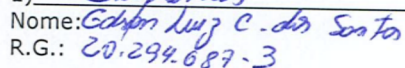 Nome: Edson Luiz C. dos Santos
R.G.: 20.294.687-3